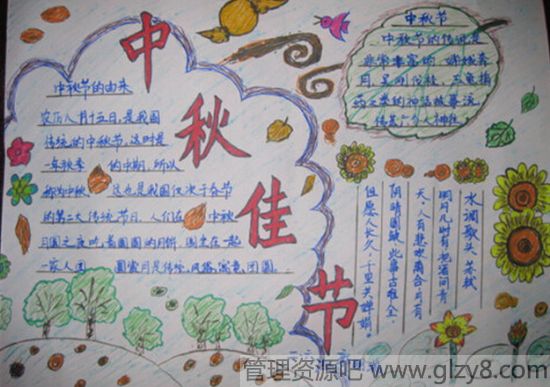 中秋佳节
中秋节的由来
农历八月十五日,是我国
传统的中秋节,这时是
一年秋季 的中期,所以
称为中秋 这也是我国仅次于春节
的第二大传统节日,人们在 中秋
月圆之夜吃着圆圆的月饼,围坐在一起
一家人团 圆赏月是传统,风俗,寓意,团圆。
中秋节
中秋节的传说是
非常丰富的,嫦娥奔
月,吴刚伐桂,玉兔捣
药之类的神话故事流
传甚广令人神往。
水调歌头 苏轼
明月几时有把酒问青
天,人有悲欢离合月有
阴晴圆缺,此事古难全
但愿人长久,千里共婵娟。
管理资源吧 www.glzy8.com